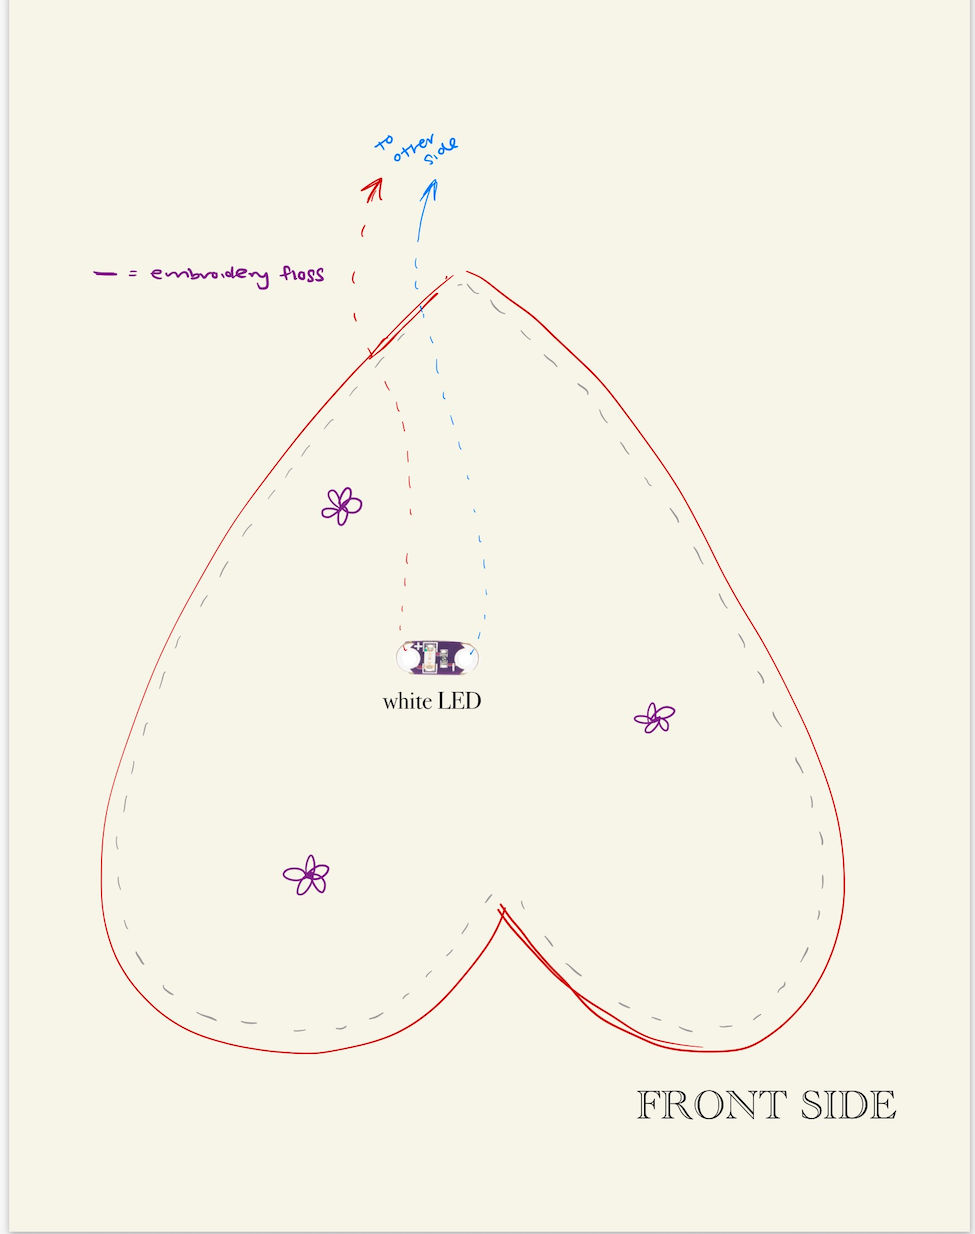 to
other
side
— = embroidery floss
+
-
white LED
FRONT SIDE